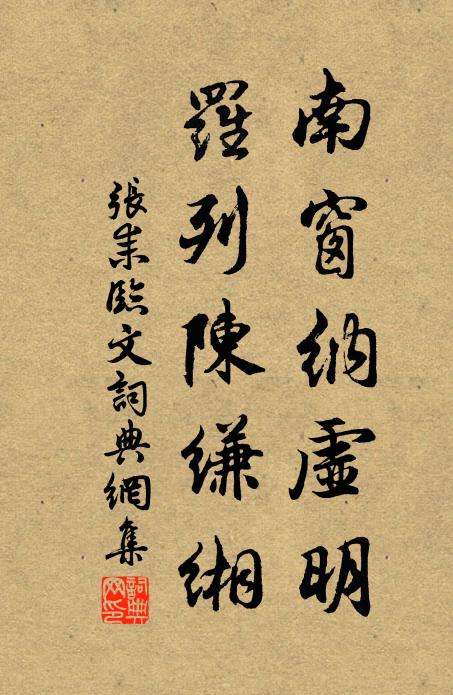 南窗納虛明
羅列陳縑緗
張耒臨文詞典網集
詞典網印